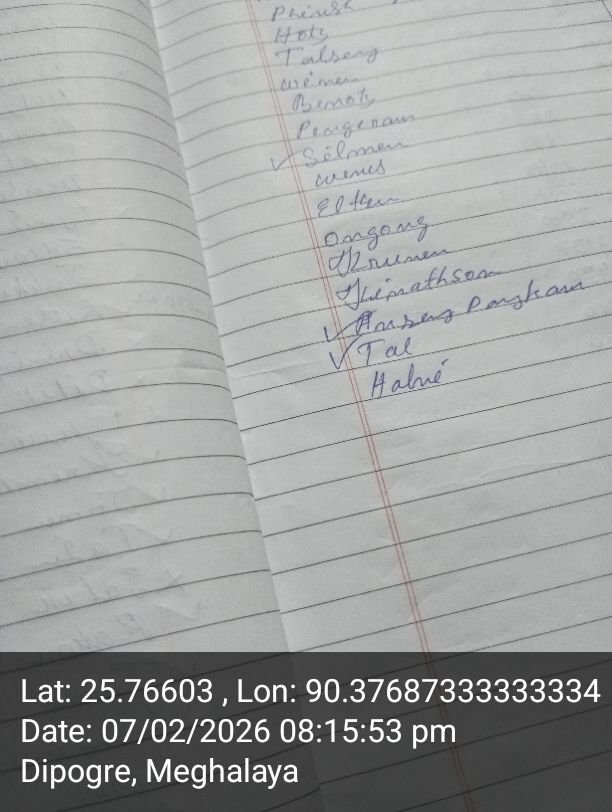 Hots
Talseng
Wémen
Benots
Pengeram
✓ Sélmen
Wenes
Elten
Ongong
Thémathson
✓ Anseng Pangkam
✓ Tal
Habré
Lat: 25.76603 , Lon: 90.37687333333334
Date: 07/02/2026 08:15:53 pm
Dipogre, Meghalaya